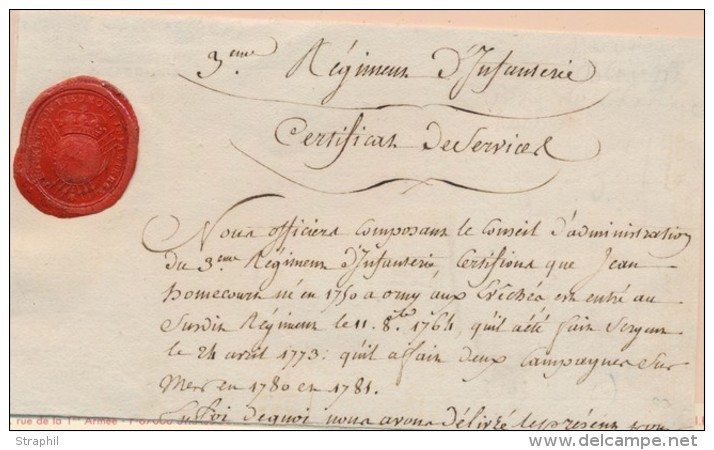 3.eme Régiment d'Infanterie
Certificat de Services
Nous officiers composant le Conseil d'administration
du 3.eme Régiment d'Infanterie, Certifions que Jean
homecourt né en 1750 a orny aux Evêchés est entré au
Susdit Régiment le 11. 8.bre 1764, qu'il a été fait Sergent
le 24 avril 1773: qu'il a fait deux Campagnes Sur
Mer en 1780 en 1781.
foi de quoi nous avons délivré le présent pour
rue de la 1re Armée - F-67000
Straphil
www.delcampe.net